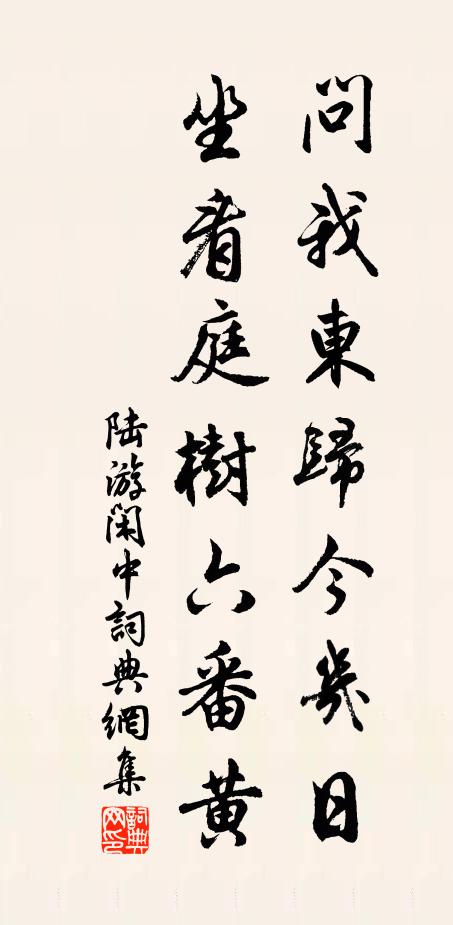 問我東歸今幾日
坐看庭樹六番黃
陸游閑中詞典網集
詞典網印